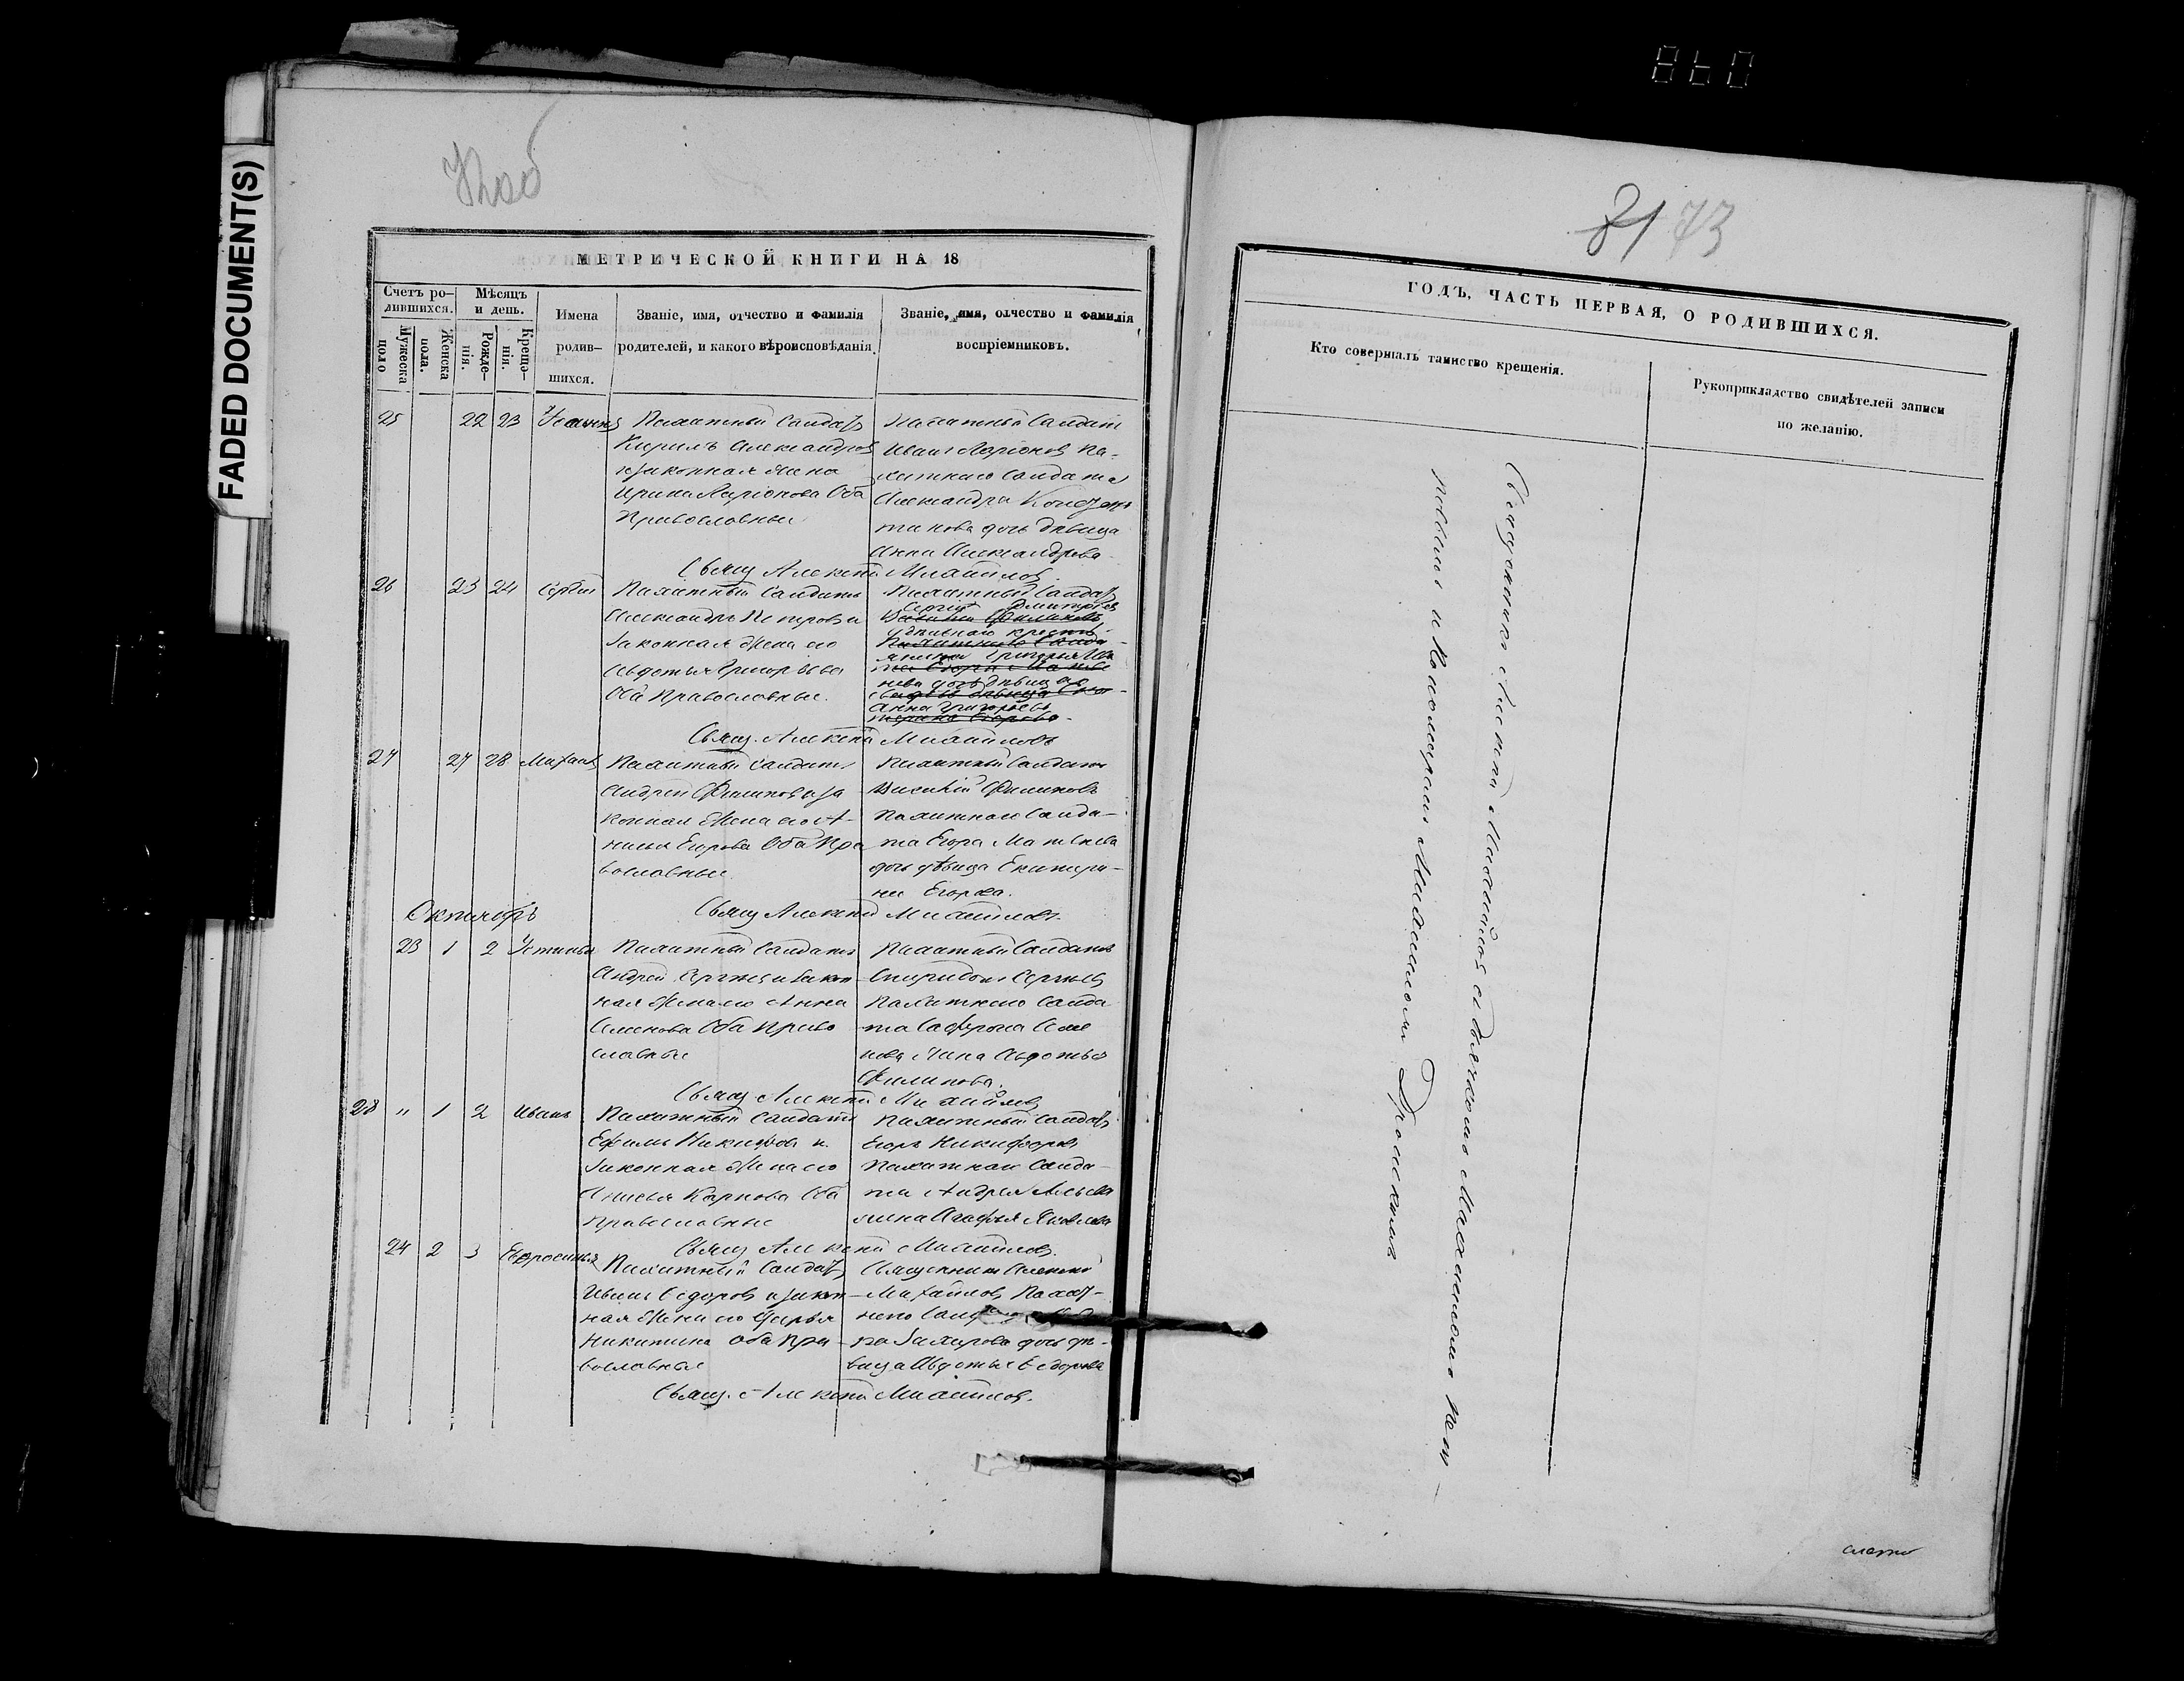 FADED DOCUMENT(S)
МЕТРИЧЕСКОЙ КНИГИ НА 18
Счетъ ро-
дившихся.
Мужеска
поло
Женска
пола.
Мѣсяцъ
и день.
Рожде-
нія.
Креще-
нія.
Имена
родив-
шихся.
Званіе, имя, отчество и фамилія
родителей, и какого вѣроисповѣданія.
Званіе, имя, отчество и фамилія
воспріемниковъ.
25 22 23
Пахатный Салдатъ
Кирилъ Александровъ
изаконная жена
Ирина Ларіонова Оба
Православные
Пахатный Салдатъ
Иванъ Ларіоновъ Па-
хатнаго Салдата
Александра
дочь дѣвица
Анна Александрова
Свящ Алексѣй Михайловъ
26 23 24 Сергѣй
Пахатный Салдатъ
Александръ Петровъ и
законная жена его
Авдотья Григорьева
Оба Православные.
Пахатный Салдатъ
Сергій Дмитріев
удѣльнаго крестья-
нина Григорья Ива
нова дочь дѣвица
Анна Григорьева
Свящ. Алексѣй Михайловъ
27 27 28 Михаилъ
Пахатный Салдатъ
Андрей Филиповъ иза
конная жена его А-
нисья Егорова Оба Пра
вославные.
Пахатный Салдатъ
Василій Филиповъ
Пахатнаго Салда-
та Егора Матвеева
дочь дѣвица Екатери-
на Егорова.
Свящ Алексѣй Михайловъ.
Октябрь
23 1 2 Устинья
Пахатный Салдатъ
Андрей Сергѣевъ изакон
ная жена его Анна
Семенова Оба Право
славные
Пахатный Салдатъ
Спиридонъ Сергѣевъ
Пахатнаго Салда
та Сафрона Семе
нова жена Авдотья
Филипова.
Свящ Алексѣй Михайловъ
28 " 1 2 Иванъ
Пахатный Салдатъ
Ефимъ Никифоровъ и
законная жена его
Анисья Карпова Оба
православные
Пахатный Салдатъ
Егоръ Никифоровъ
Пахатнаго Салда-
та Андрея
жена Агафья Яковлева
Свящ Алексѣй Михайловъ.
24 2 3 Евфросинья
Пахатный Салдатъ
Иванъ Седоровъ изакон-
ная жена его Дарья
Никитина Оба Пра-
вославные
Священникъ Алексѣй
Михайловъ Пахат-
наго
Захарова дочь дѣ-
вица Авдотья Седорова
Свящ. Алексѣй Михайловъ.
81 73
ГОДЪ, ЧАСТЬ ПЕРВАЯ, О РОДИВШИХСЯ.
Кто совершалъ таинство крещенія.
Рукоприкладство свидѣтелей записи
по желанію.
Священникъ Алексѣй Михайловъ съ Дьячкомъ
и Пономаремъ